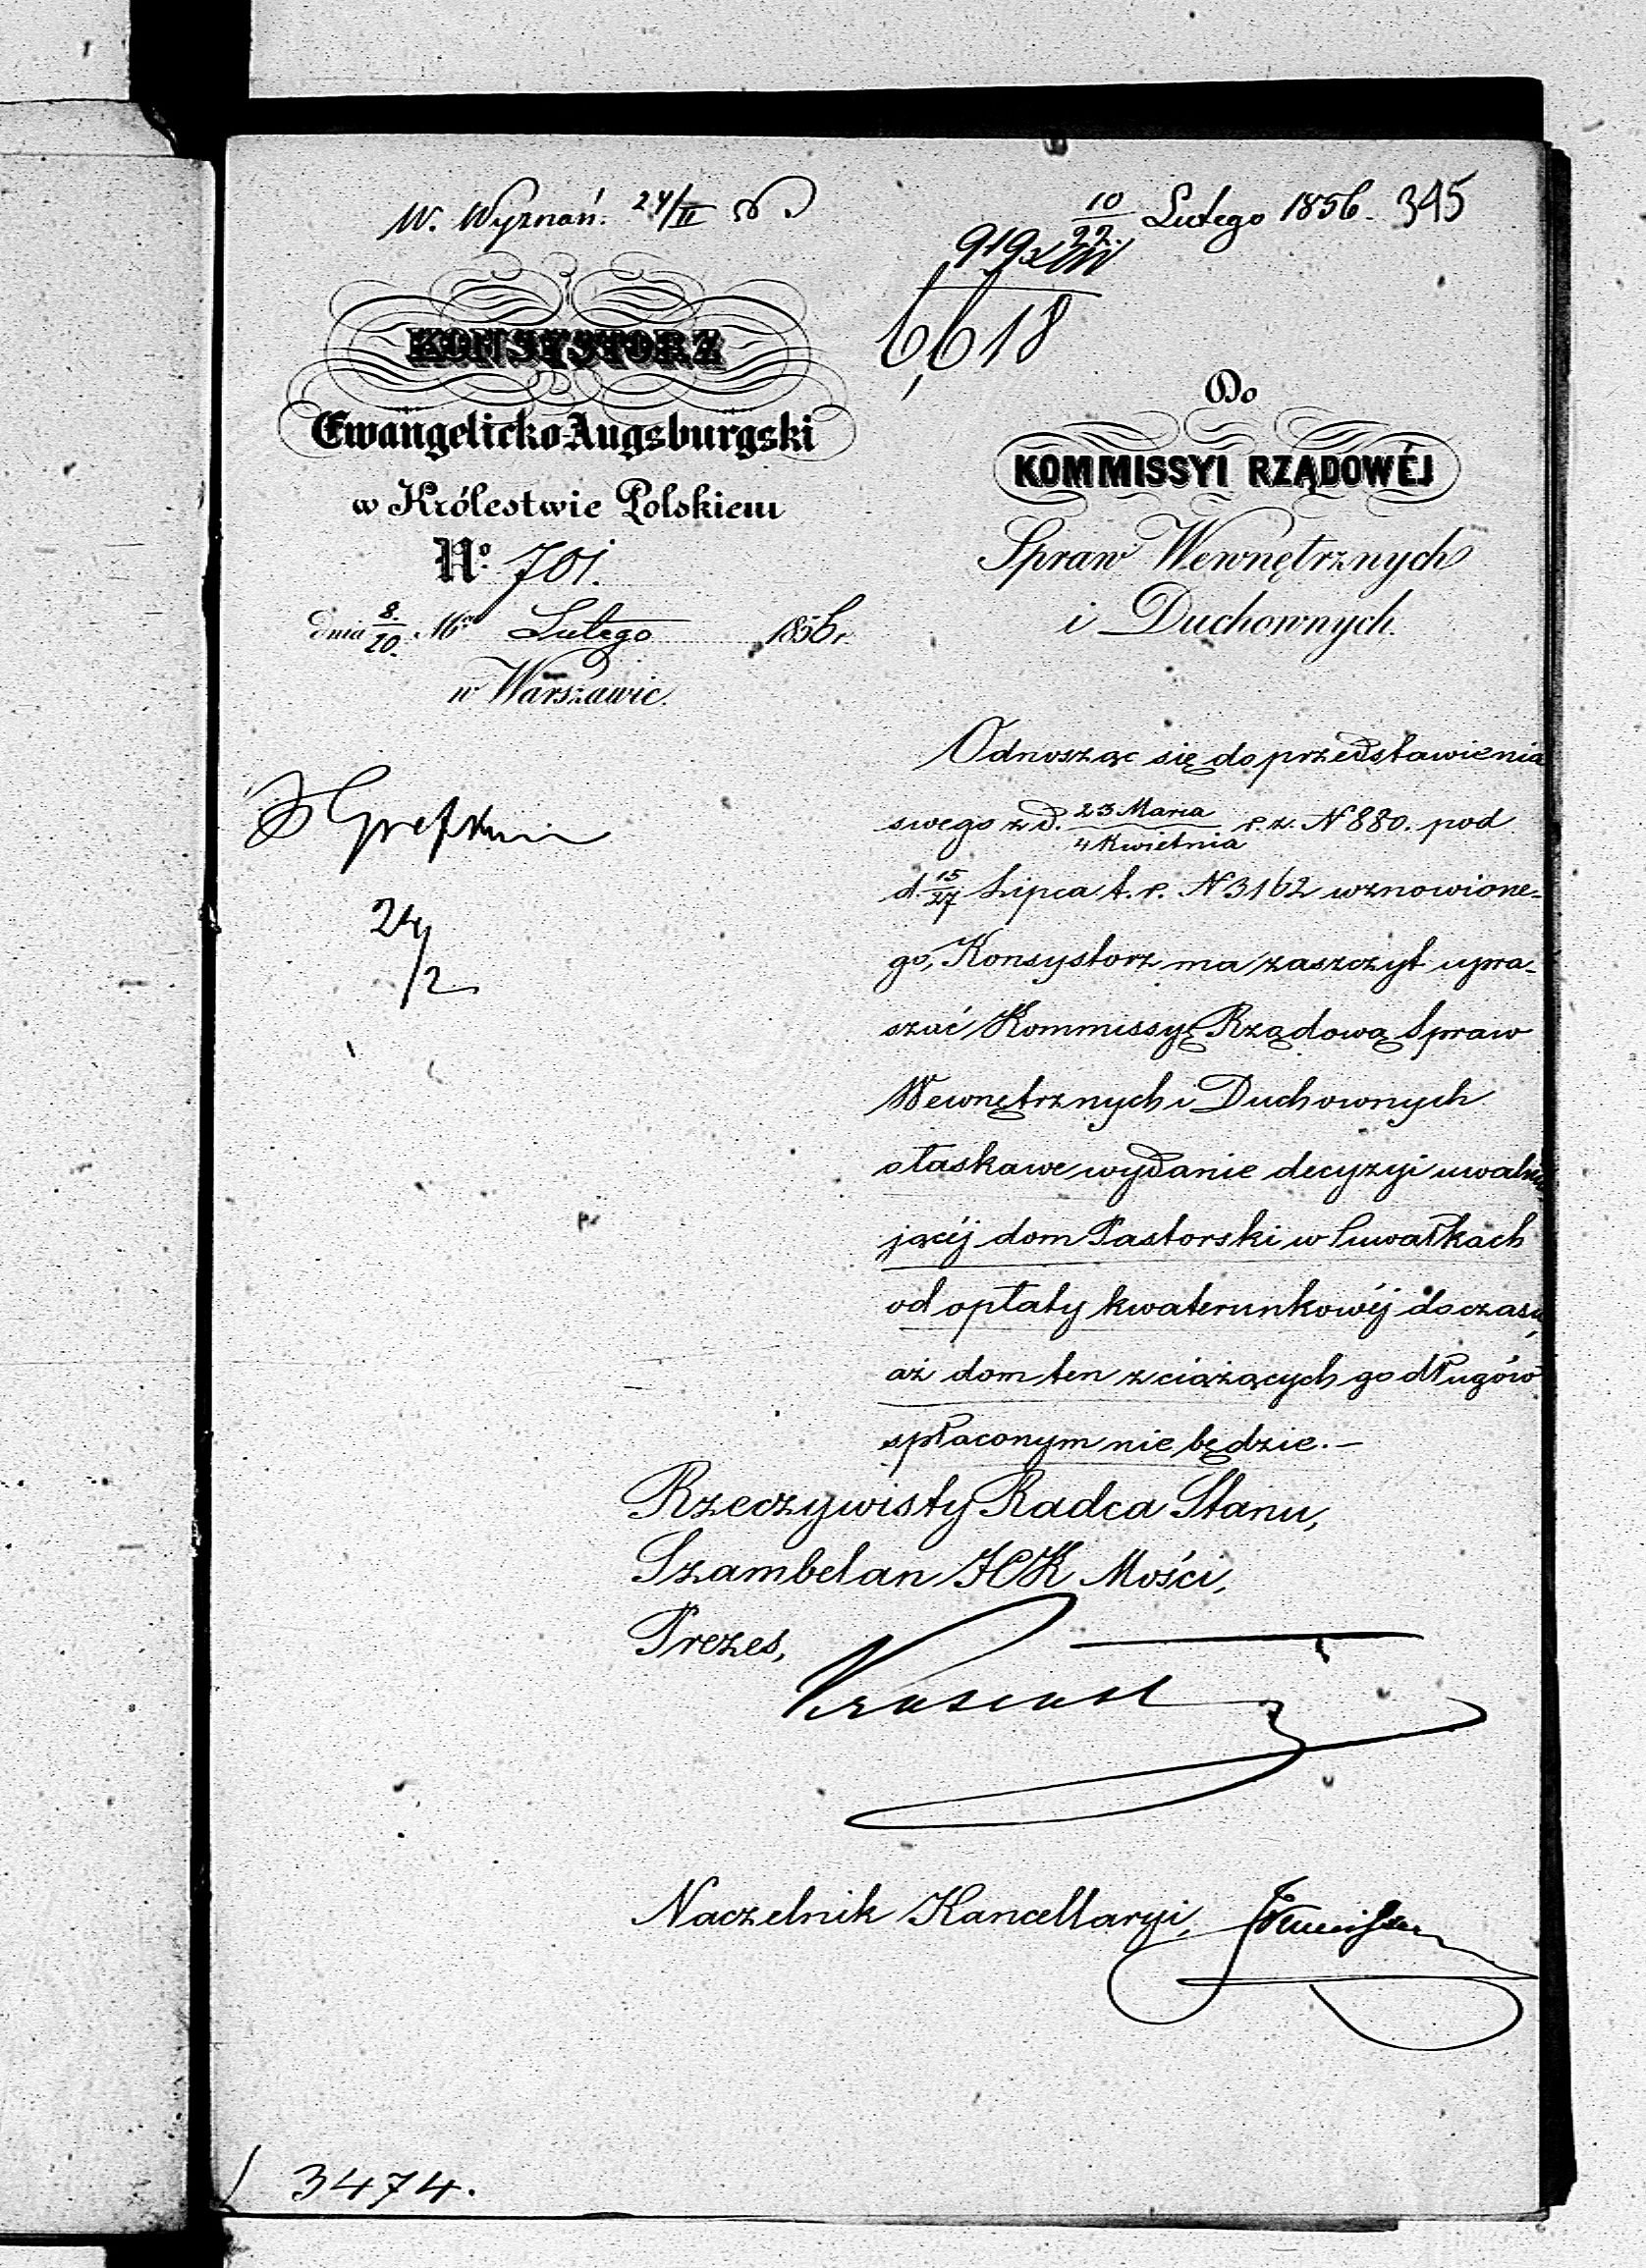 W. Wyznań. 24/II
10/22 Lutego 1856. 345
919
6,618
KONSYSTORZ
Ewangelicko-Augsburgski
w Królestwie Polskiem
No. 701.
dnia 8/20. Mca Lutego 1856 r.
w Warszawie.
Do
KOMMISSYI RZĄDOWÉJ
Spraw Wewnętrznych
i Duchownych.
24/2
Odnosząc się do przedstawienia
swego z d. 23 Marca/4 Kwietnia r. z. N 880. pod
d. 15/27 Lipca t. r. N 3162 wznowione-
go, Konsystorz ma zaszczyt upra-
szać Kommissyę Rządową Spraw
Wewnętrznych i Duchownych
o łaskawe wydanie decyzyi uwalnia
jącéj dom Pastorski w Suwałkach
od opłaty kwaterunkowéj do czasu,
aż dom ten z ciążących go długów
spłaconym nie będzie.—
Rzeczywisty Radca Stanu,
Szambelan JCK Mości,
Prezes,
Naczelnik Kancellaryi,
3474.